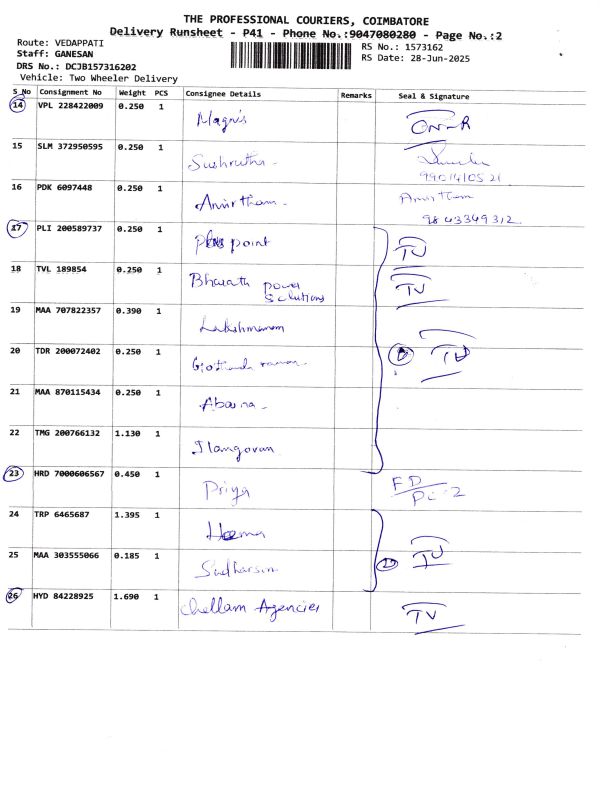 THE PROFESSIONAL COURIERS, COIMBATORE
Delivery Runsheet - P41 - Phone No.:9047080280 - Page No.:2
Route: VEDAPPATI
Staff: GANESAN
DRS No.: DCJB157316202
Vehicle: Two Wheeler Delivery
RS No.: 1573162
RS Date: 28-Jun-2025
S_No Consignment No Weight PCS Consignee Details Remarks Seal & Signature
14 VPL 228422009 0.250 1 Magnis
15 SLM 372950595 0.250 1 Sushruthi
9901410521
16 PDK 6097448 0.250 1 Amirtham Amirtham
9843349312
17 PLI 200589737 0.250 1 Plus point TV
18 TVL 189854 0.250 1 Bharath power TV
Solutions
19 MAA 707822357 0.390 1 Lakshmanan
20 TDR 200072402 0.250 1 TV
21 MAA 870115434 0.250 1 Abarna
22 TMG 200766132 1.130 1 Ilangovan
23 HRD 7000606567 0.450 1 Priya FD
24 TRP 6465687 1.395 1 Heema
25 MAA 303555066 0.185 1 Sudharsin TV
26 HYD 84228925 1.690 1 Chellam Agencies TV